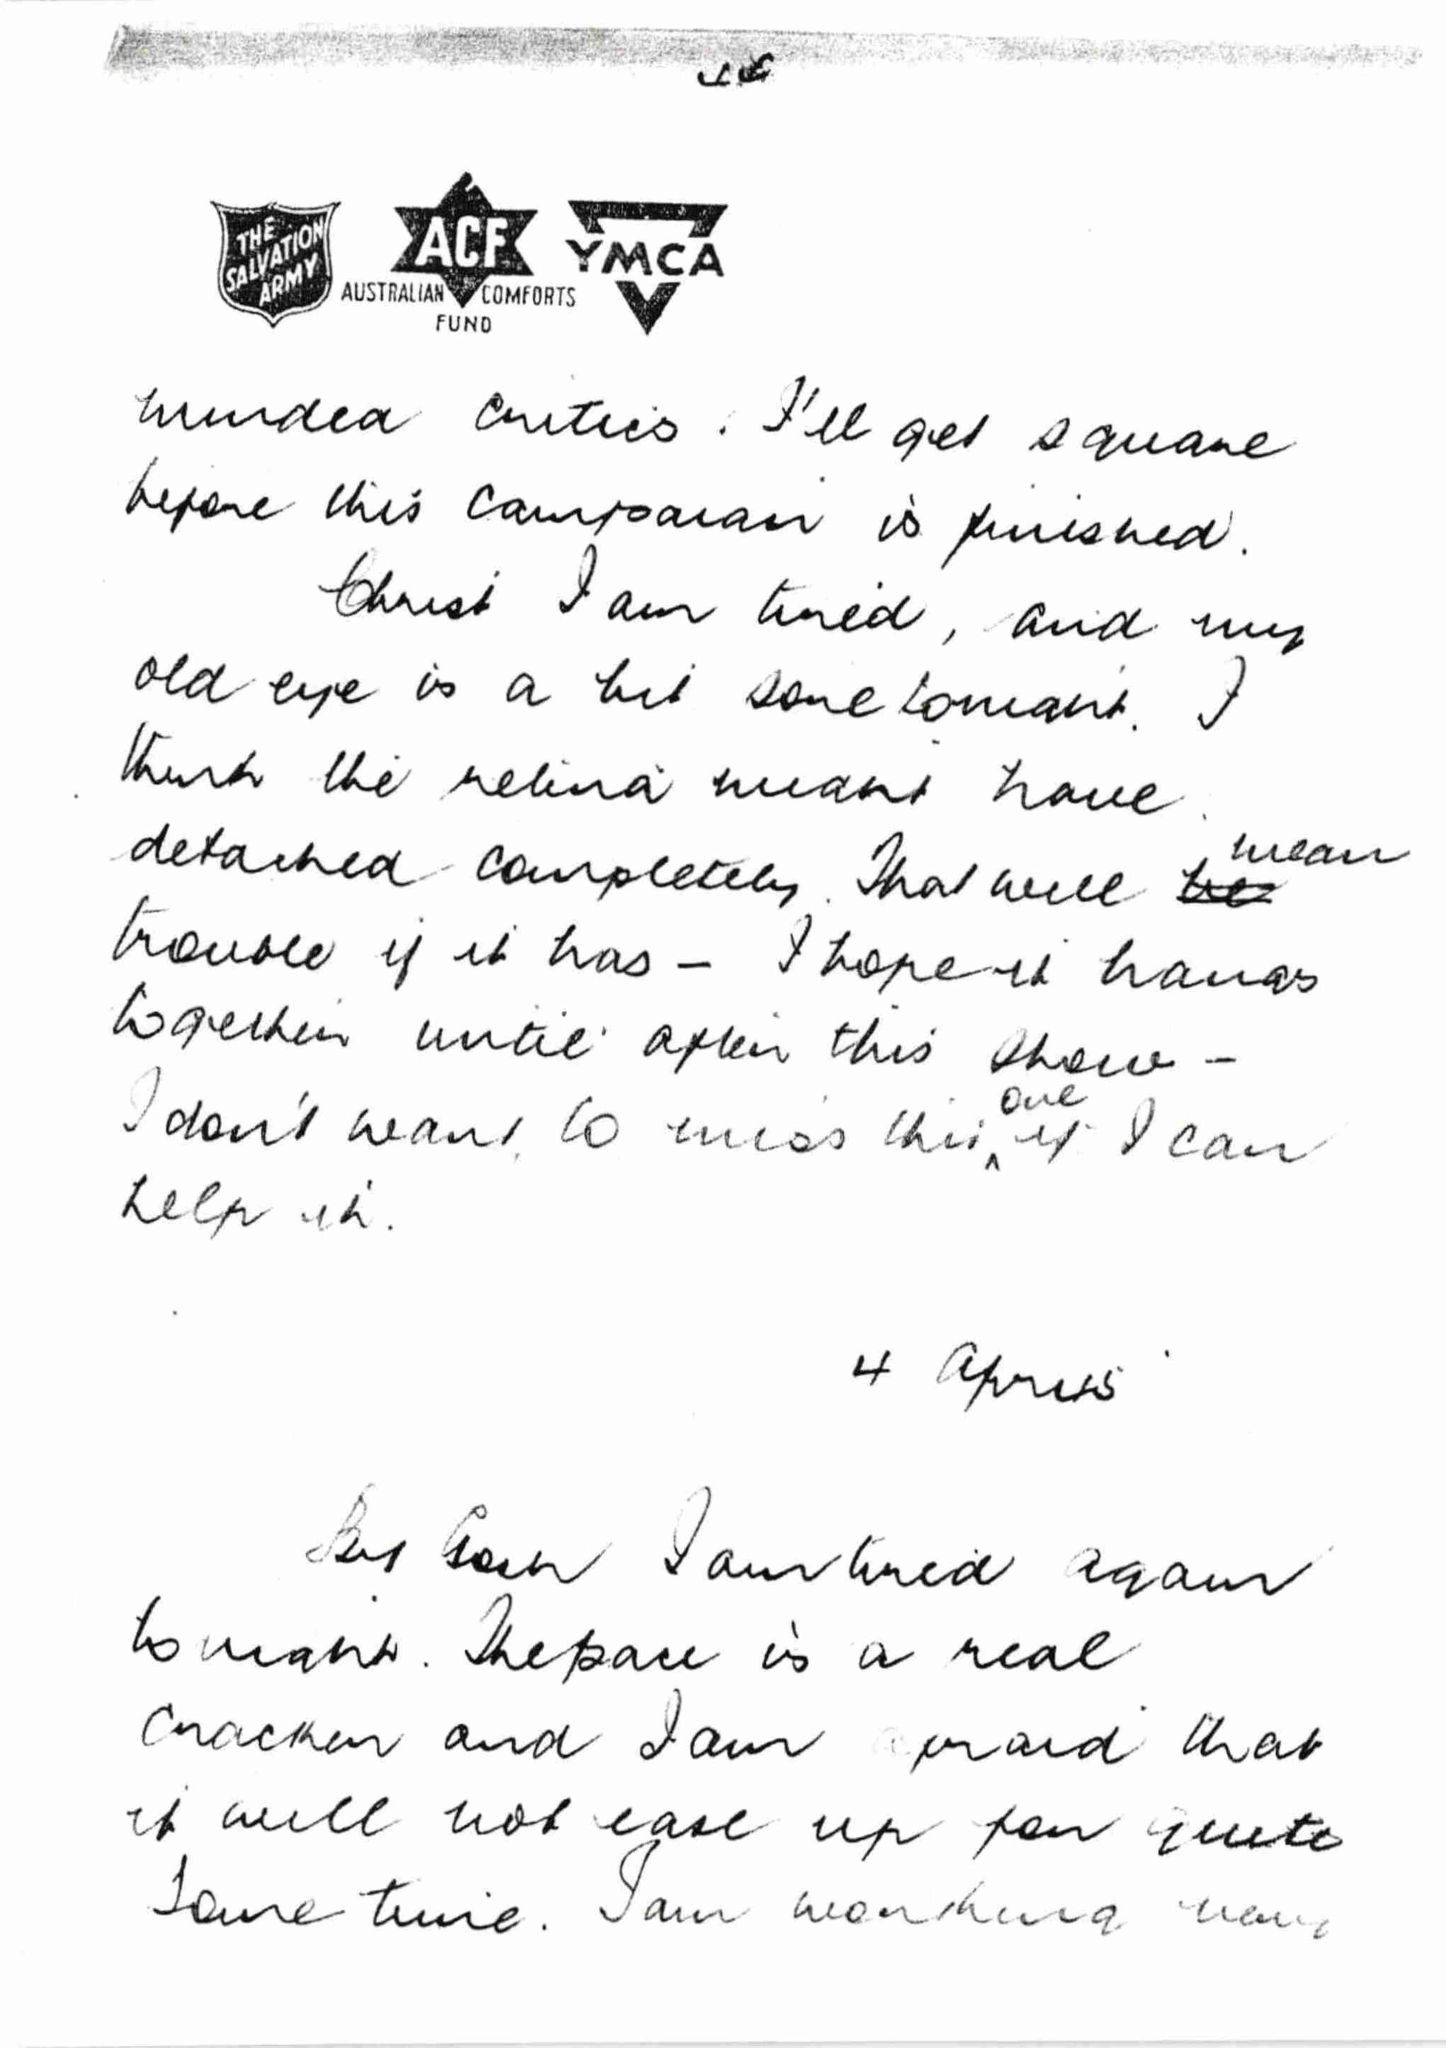 THE
SALVATION
ARMY
ACF
AUSTRALIAN COMFORTS
FUND
YMCA
minded critics. I'll get square
before this campaign is finished.
Christ I am tired, and my
old eye is a bit sore tonight. I
think the retina might have
detached completely. That will be mean
trouble if it has - I hope it hangs
together until after this show -
I don't want to miss this one if I can
help it.
4 April
By Gosh I am tired again
tonight. The pace is a real
cracker and I am afraid that
it will not ease up for quite
some time. I am working very